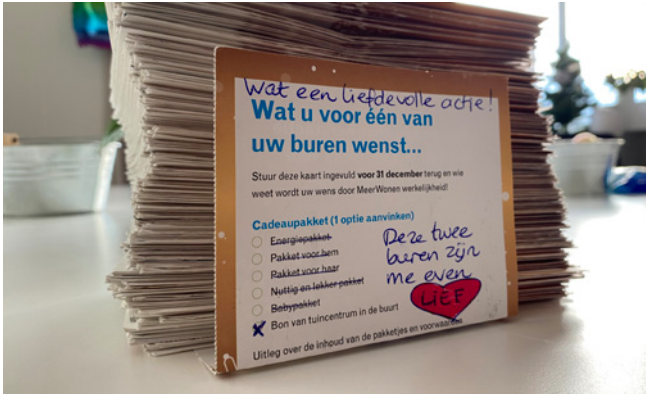 Wat een liefdevolle actie!
Wat u voor één van
uw buren wenst...
Stuur deze kaart ingevuld voor 31 december terug en wie
weet wordt uw wens door MeerWonen werkelijkheid!
Cadeaupakket (1 optie aanvinken)
Energiepakket
Pakket voor hem
Pakket voor haar
Nuttig en lekker pakket
Babypakket
Bon van tuincentrum in de buurt
Deze twee
buren zijn
me even
LIEF
Uitleg over de inhoud van de pakketjes en voorwaarden